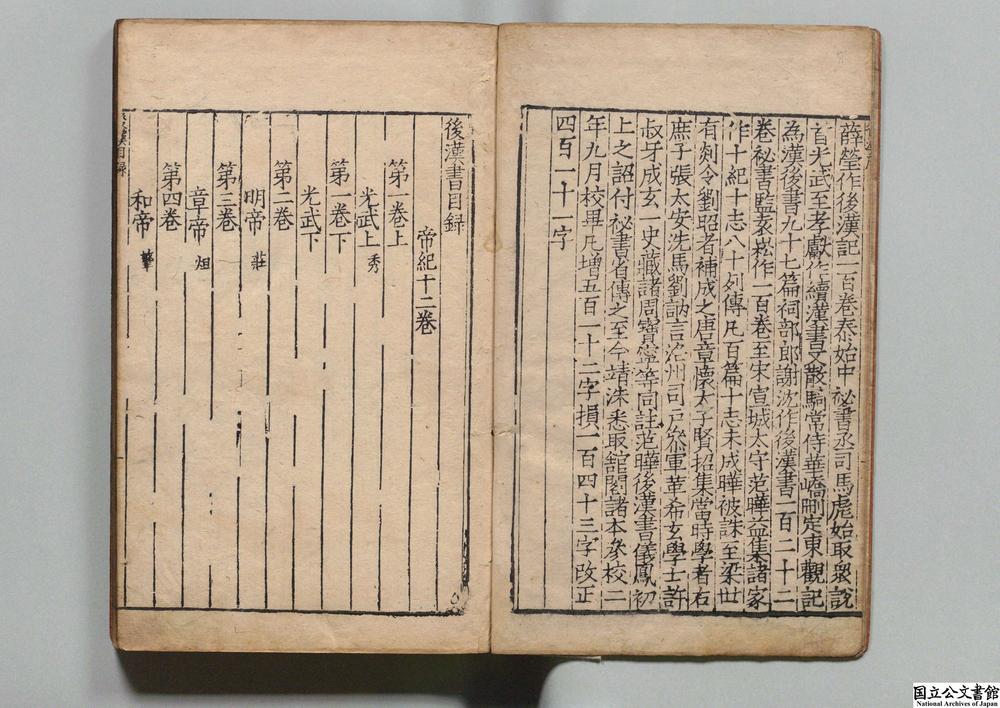 薛瑩作後漢記一百卷泰始中秘書丞司馬彪始取衆說
首光武至孝獻作續漢書又散騎常侍華嶠刪定東觀記
為漢後書九十七篇祠部郎謝沈作後漢書一百二十二
卷秘書監袁崧作一百卷至宋宣城太守范曄益集諸家
作十紀十志八十列傳凡百篇十志未成曄被誅至梁世
有剡令劉昭者補成之唐章懷太子賢招集當時學者右
庶子張太安洗馬劉訥言洛州司戶叅軍革希玄學士許
叔牙成玄一史藏諸周寶寧等同註范曄後漢書儀鳳初
上之詔付秘書省傳之至今靖洙悉取舘閣諸本叅校二
年九月校畢凡增五百一十二字損一百四十三字改正
四百一十一字
後漢書目録
帝紀十二卷
第一卷上
光武上 秀
第一卷下
光武下
第二卷
明帝 莊
第三卷
章帝 炟
第四卷
和帝 肇
目録
国立公文書館
National Archives of Japan